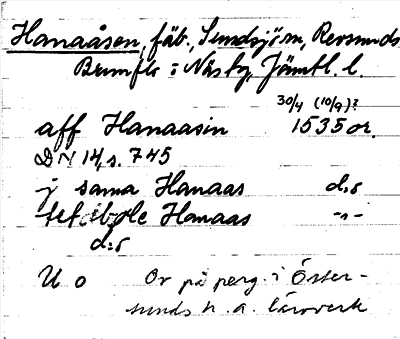 Hanaåsen, fäb., Sundsjö sn, Revsunds,
Brunflo i Näsby, Jämtl. l.
30/4 (10/9)?
aff Hanaasin 1535 or.
DN 14, s. 745
j sama Hanaas d:o
Hanaas -"-
d:o
U o Or på perg. i Öster-
sunds h. a. läroverk